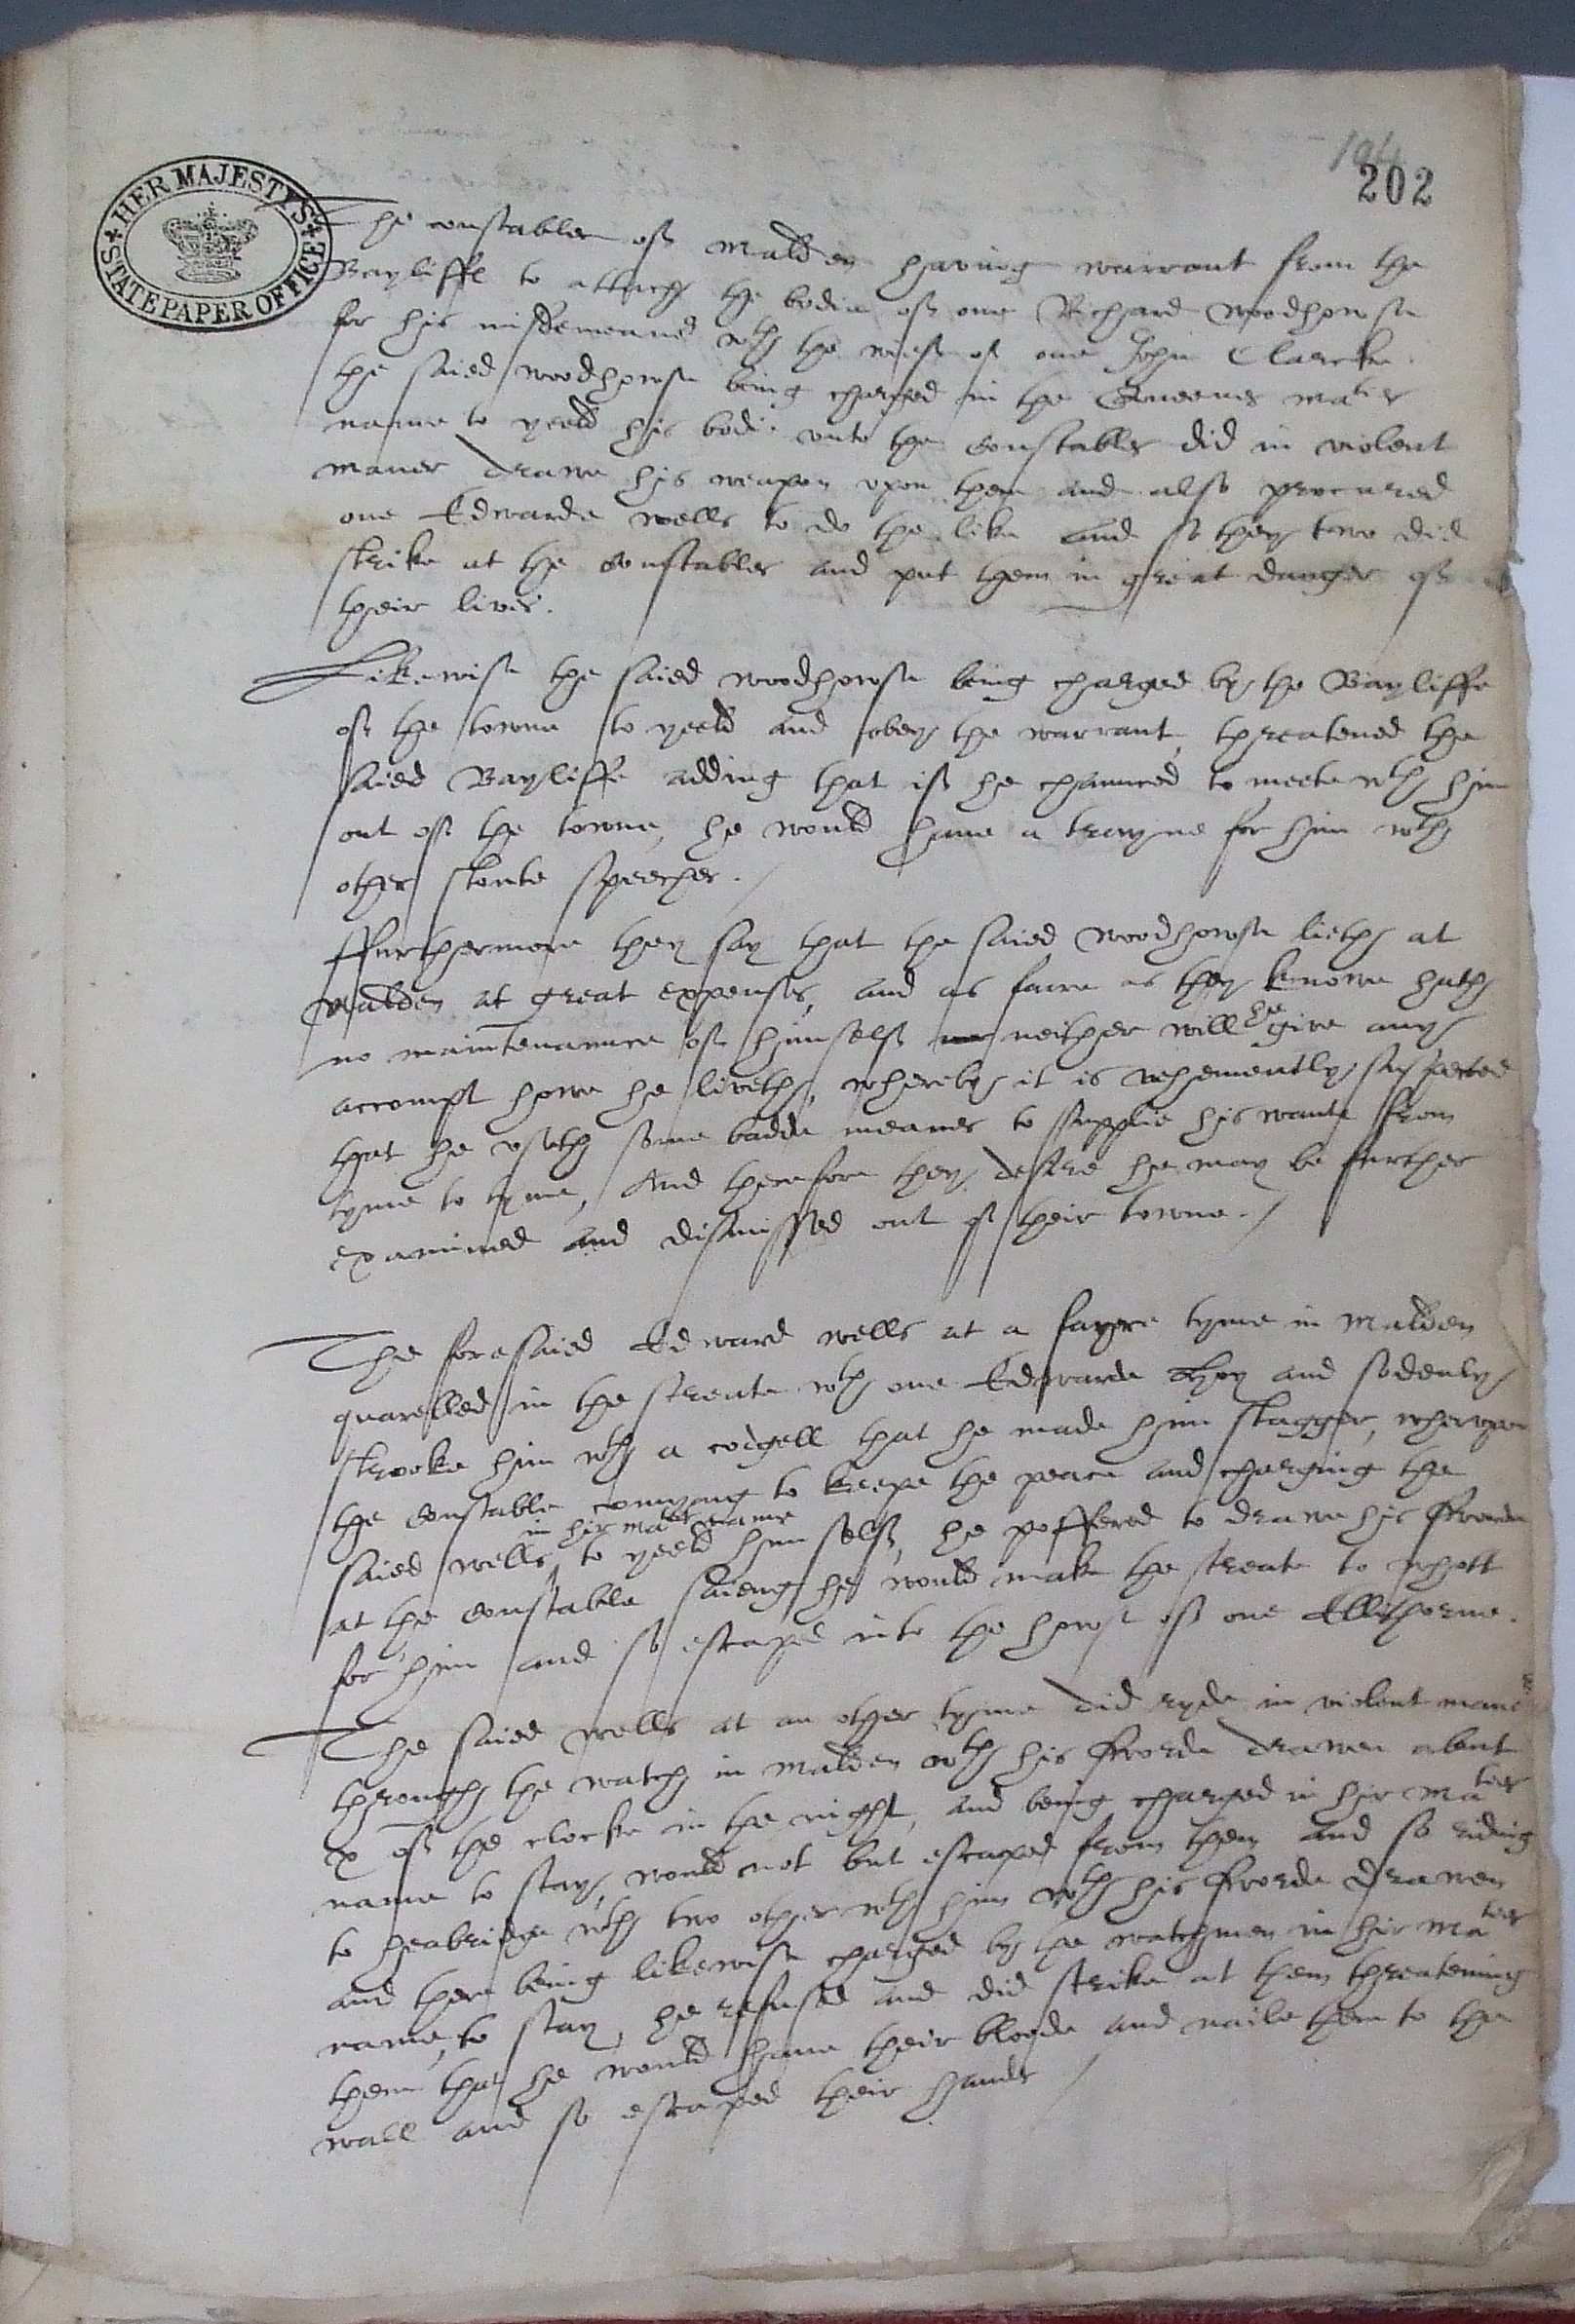 194
202
HER MAJESTYS
STATE PAPER OFFICE
The constables of Malden having warrant from the
Bayliffe to attach the bodie of one Richard Woodhowse
for his misdemeanor wth the wief of one John Clarcke.
the saied Woodhowse being charged in the Queenes maties
name to yeeld his bodie vnto the Constables did in violent
maner drawe his weapon vpon them and also procured
one Edwarde Wells to do the like and so they two did
strike at the Constables and put them in great danger of
their lives.
Likewise the saied Woodhowse being charged by the Bayliffe
of the towne to yeeld and obey the warrant, threatened the
saied Bayliffe adding that if he chaunced to meete wth him
out of the towne, he would have a trayne for him wth
other stoute speeches. /
ffurthermore they say that the saied Woodhowse lieth at
Malden at great expenses, and as farre as they knowe hath
no maintenaunce of himself neither will he give any
accompt howe he liveth, whereby it is vehemently suspected
that he vseth some badde meanes to supplie his wante from
tyme to tyme, And therefore they desire he may be further
examined and dismissed out of their towne. /
The foresaied Edward Wells at a fayre tyme in Malden
quarelled in the streate wth one Edwarde and sodenly
strooke him wth a codgell that he made him stagger, wherupon
the Constable comyng to keepe the peace and charging the
in hir maties name
saied Wells to yeeld himself, he poffered to drawe his sworde
at the Constable saieng he would make the streate to whott
for him and so escaped into the howse of one Ellithorne.
The saied Wells at an other tyme did ryde in violent maner
through the watch in Malden wth his sworde drawen about
x of the clocke in the night, and being charged in hir maties
name to stay, would not but escaped from them and so riding
to heabridge wth two other wth him wth his sworde drawen
and there being likewise charged by the watchmen in hir maties
name, to stay, he refused and did strike at them threatening
them that he would have their bloode and naile them to the
wall and so escaped their hands /